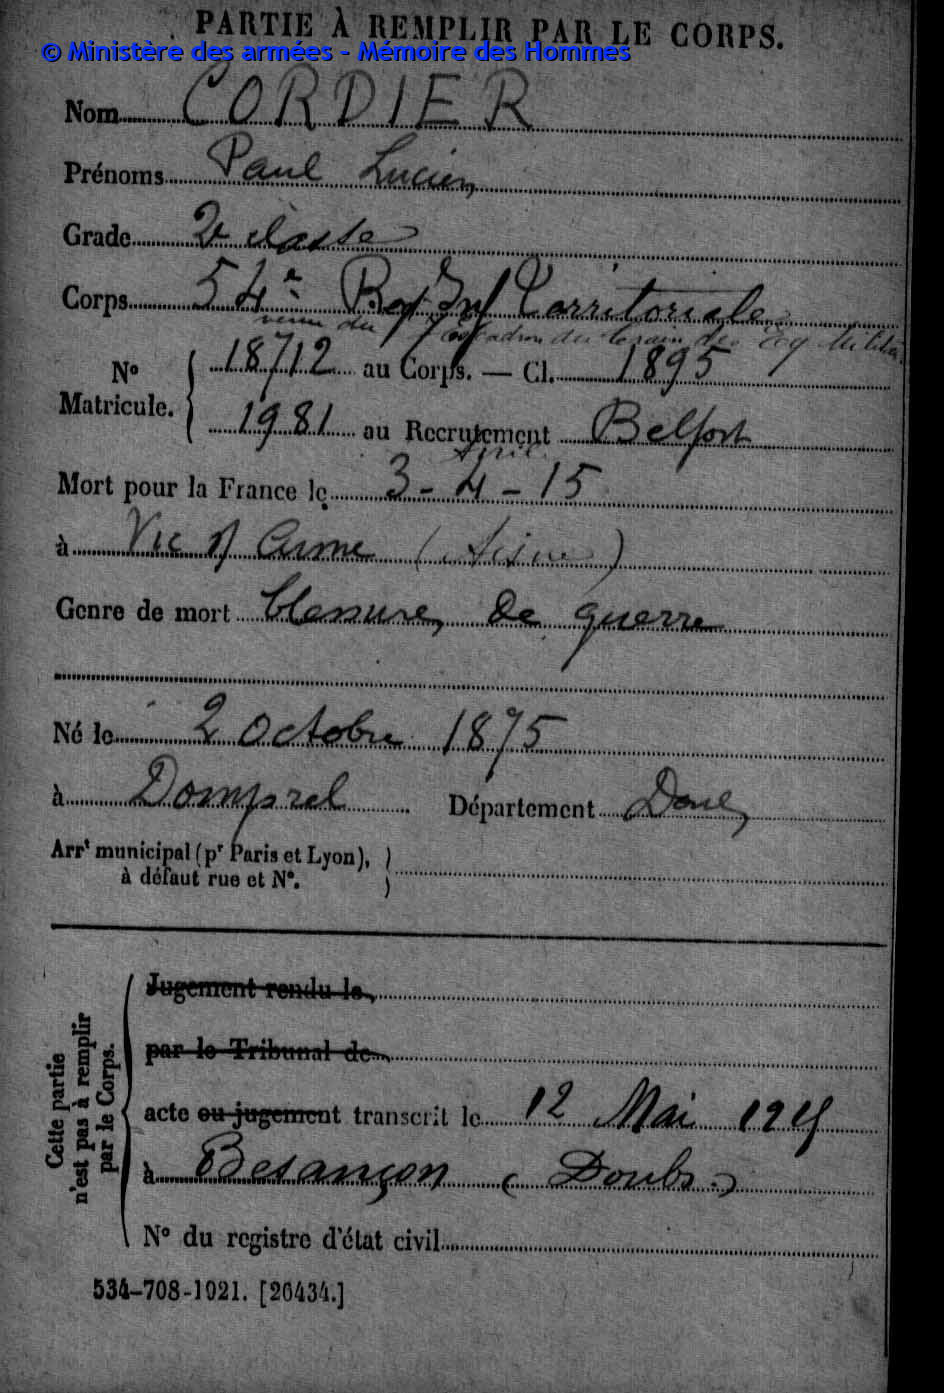 PARTIE À REMPLIR PAR LE CORPS.
© Ministère des armées - Mémoire des Hommes
Nom CORDIER
Prénoms Paul Lucien
Grade 2e classe
Corps 54e Reg Inf Territoriale
venu du Escadron du train des Eq Milit
No Matricule. 18712 au Corps. — Cl. 1895
1981 au Recrutement Belfort
Avril
Mort pour la France le 3 - 4 - 15
à Vic s/ Aisne (Aisne)
Genre de mort blessure, de guerre
Né le 2 Octobre 1875
à Domprel Département Doub
Arrt municipal (pr Paris et Lyon),
à défaut rue et No.
Cette partie
n'est pas à remplir
par le Corps.
Jugement rendu le
par le Tribunal de
acte ou jugement transcrit le 12 Mai 1915
à Besançon (Doubs)
No du registre d'état civil
534-708-1921. [26434.]